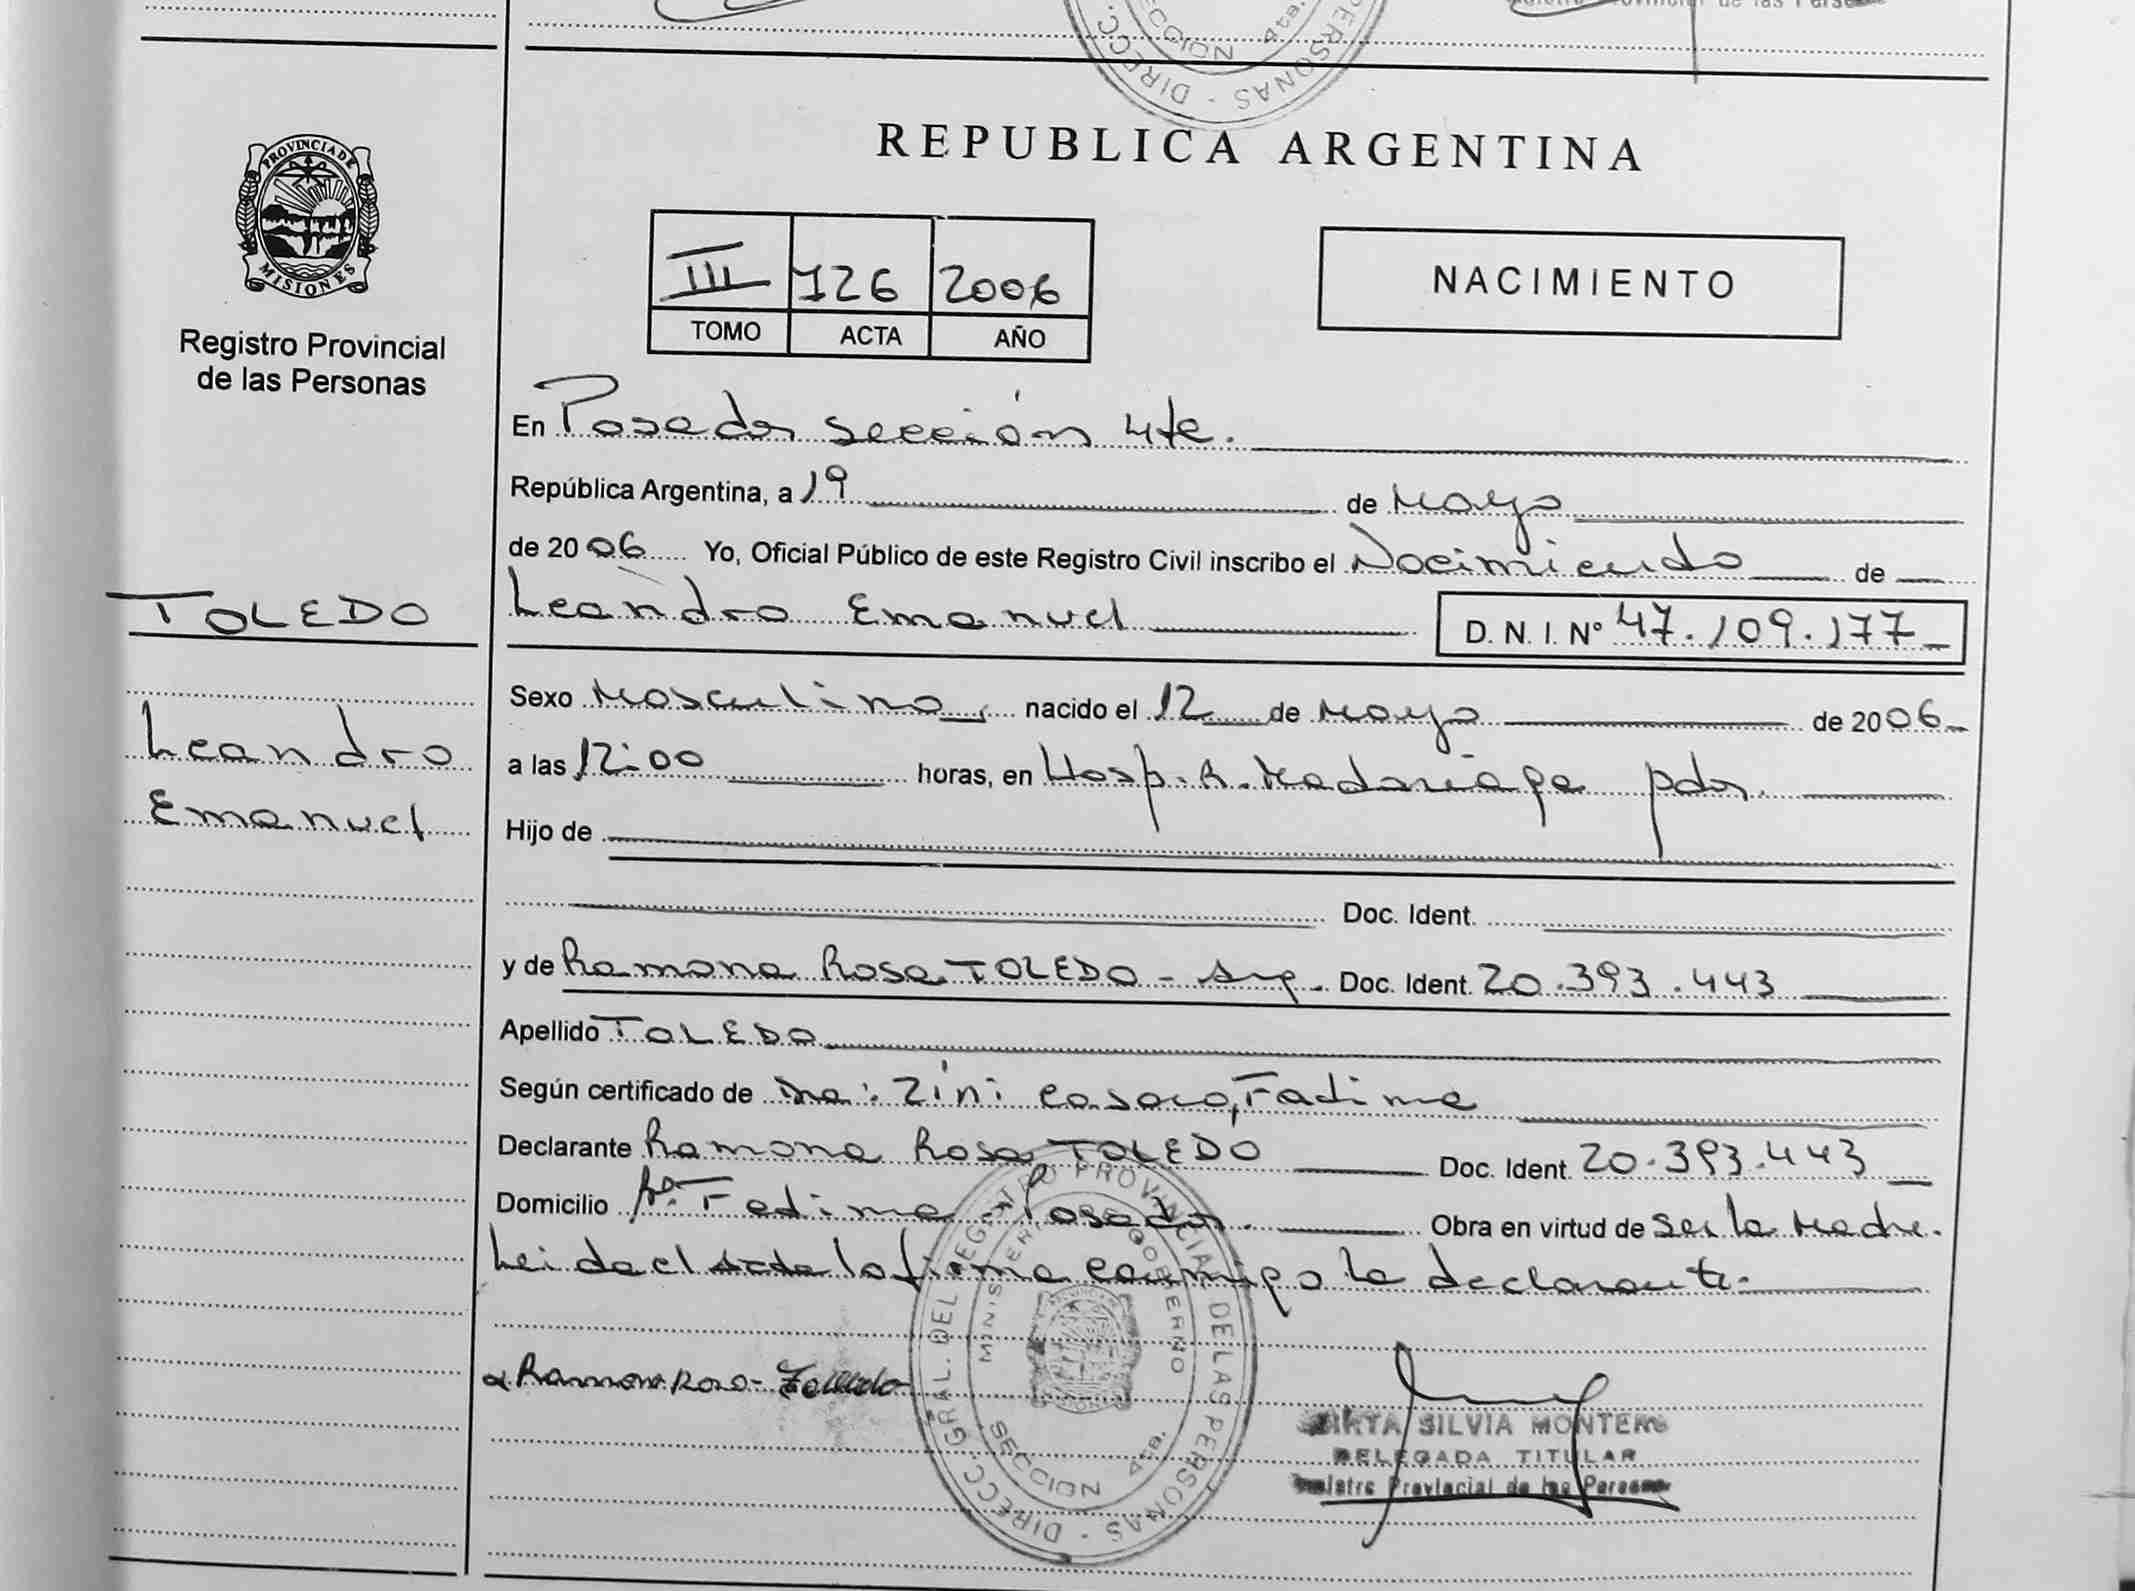 REPUBLICA ARGENTINA
PROVINCIA DE MISIONES
Registro Provincial
de las Personas
III 126 2006
TOMO ACTA AÑO
NACIMIENTO
En Posadas sección 4ta.
República Argentina, a 19 de Mayo
de 2006 Yo, Oficial Público de este Registro Civil inscribo el Nacimiento de
TOLEDO
Leandro Emanuel D. N. I. Nº 47.109.177
Sexo Masculino, nacido el 12 de Mayo de 2006
Leandro
a las 12:00 horas, en Hosp. R. Madariaga pdas.
Emanuel
Hijo de
Doc. Ident.
y de Ramona Rosa TOLEDO - Arg. Doc. Ident. 20.393.443
Apellido TOLEDO
Según certificado de Zini Fatima
Declarante Ramona Rosa TOLEDO Doc. Ident. 20.393.443
Domicilio Bº. Fatima - Posadas. Obra en virtud de ser la Madre.
Leida el Acta la firma conmigo la declarante.
Ramona Rosa Toledo
DIRECC. GRAL. DEL REGISTRO PROVINCIAL DE LAS PERSONAS
MINISTERIO GOBIERNO
SECCION 4ta.
SILVIA MONTERO
DELEGADA TITULAR
Registro Provincial de las Personas